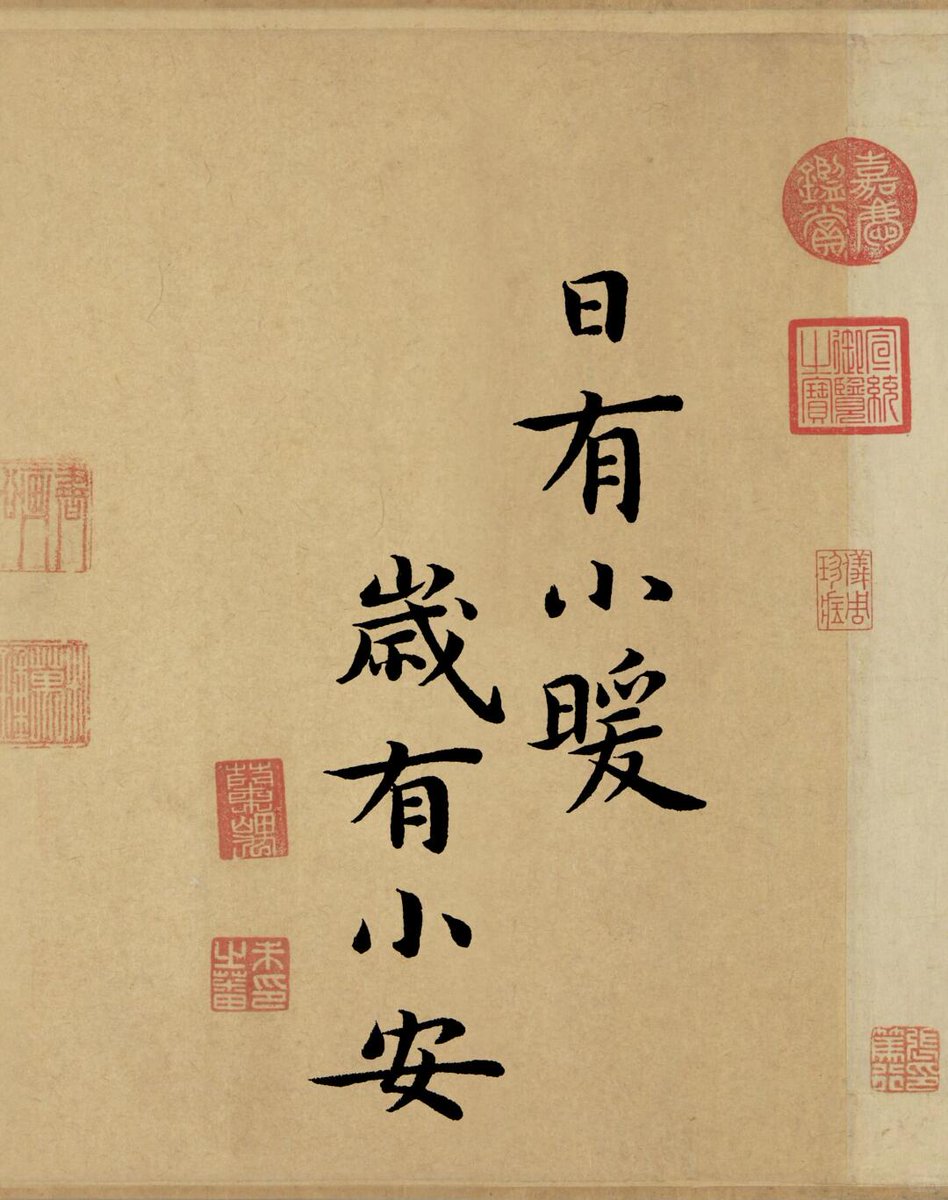 日有小暖
歲有小安
嘉慶鑑賞
宣統御覽之寶
儀周珍藏